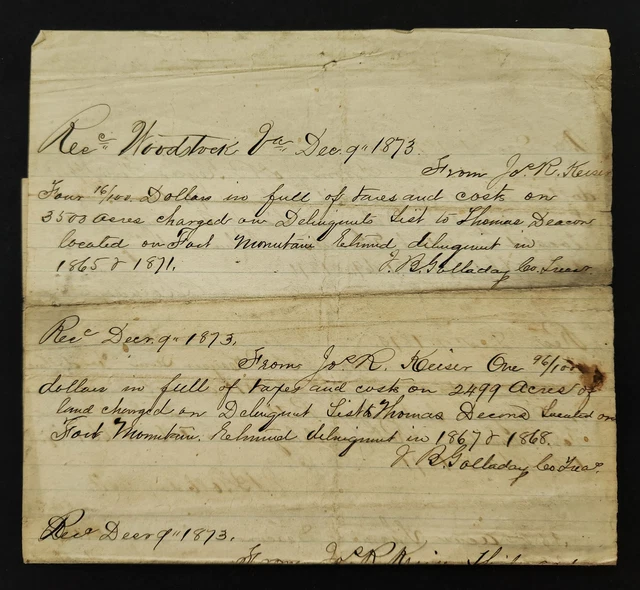 Recᶜ Woodstock Va, Decr 9" 1873.
From Joˢ R. Keiser
Four 16/100 Dollars in full of taxes and costs on
3500 acres charged on Delinquts List to Thomas Deacon
located on Fort Mountain Returned delinquent in
1865 & 1871.
J. B. Golladay Co. Treasr
Recᶜ Decr 9" 1873.
From Joˢ R. Keiser One 96/100
dollars in full of taxes and costs on 2499 Acres of
land charged on Delinquent List to Thomas Decons Located on
Fort Mountain. Returned delinquent in 1867 & 1868.
J B. Golladay Co Treaˢ.
Recᶜ Decr 9" 1873.
From Joˢ R Keiser